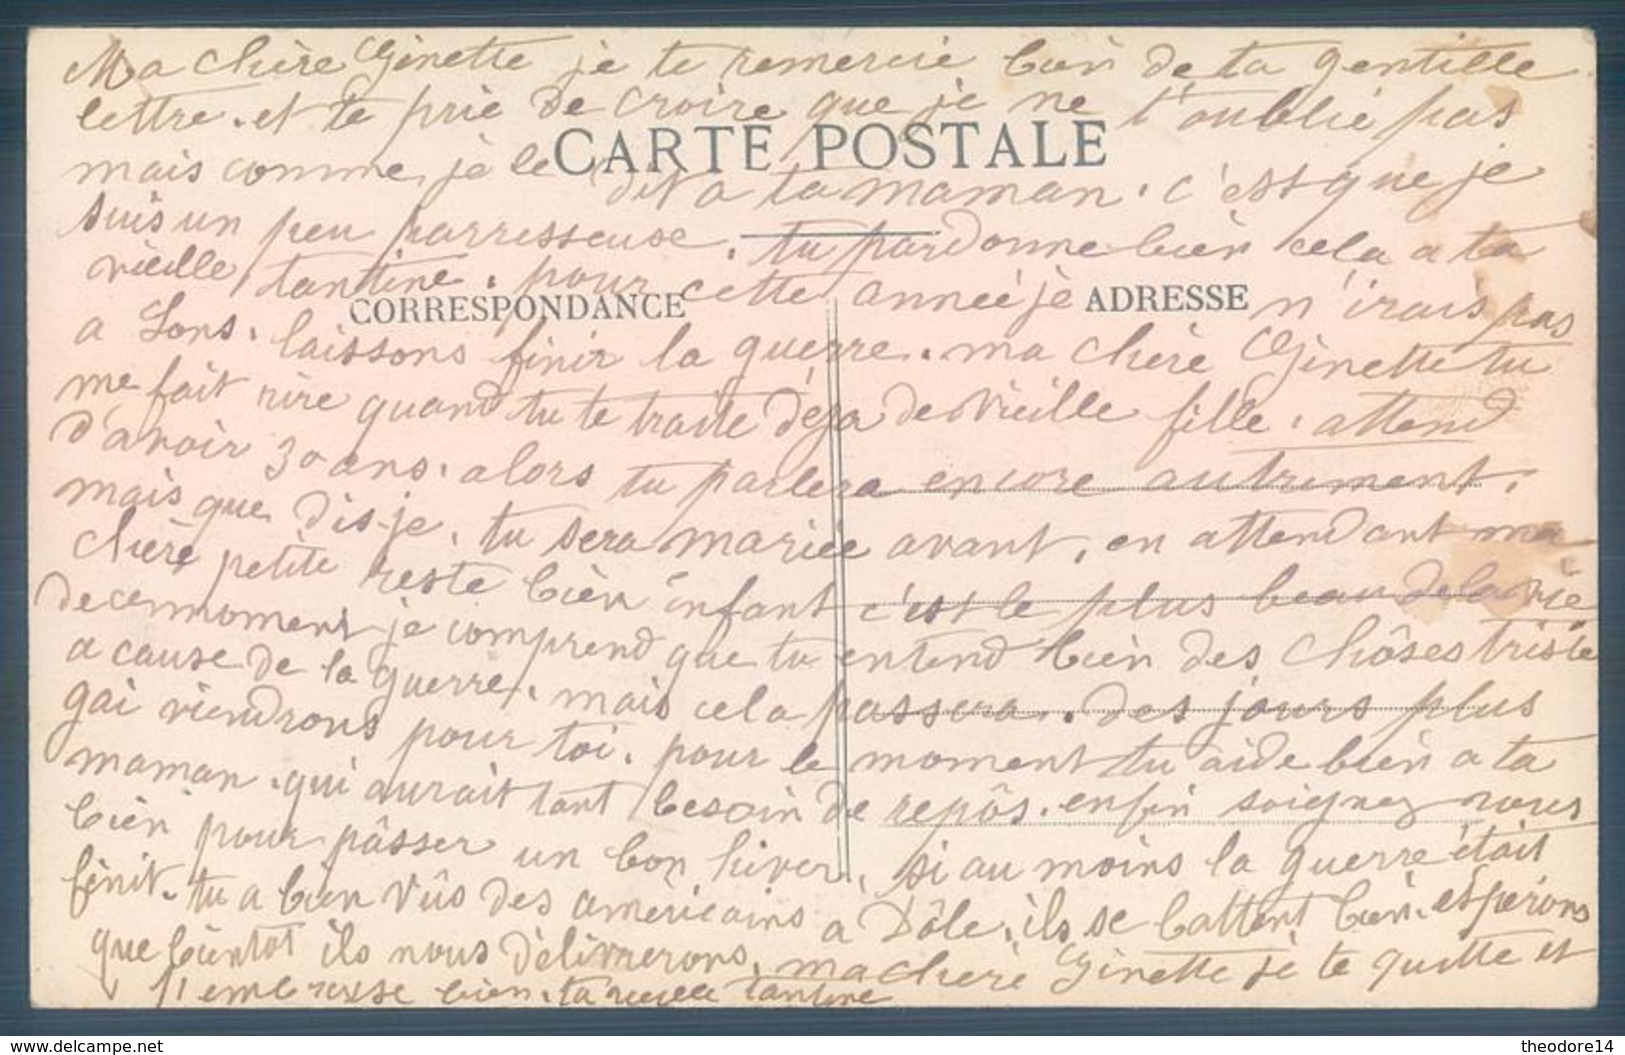 Ma chère Ginette je te remercie bien de ta gentille
lettre. et te prie de croire que je ne t'oublie pas
CARTE POSTALE
mais comme je le dit a ta maman. c'est que je
suis un peu parresseuse. tu pardonne bien cela a ta
vieille tantine. pour cette année je n'irais pas
CORRESPONDANCE
ADRESSE
a Lons. laissons finir la guerre. ma chère Ginette tu
me fait rire quand tu te traite déja de vieille fille. attend
d'avoir 30 ans. alors tu parlera encore autrement.
mais que dis-je. tu sera mariée avant. en attendant ma
chère petite reste bien enfant c'est le plus beau de la vie
de ce moment je comprend que tu entend bien des chôses triste
a cause de la guerre. mais cela passera. des jours plus
gai viendrons pour toi. pour le moment tu aide bien a ta
maman. qui aurait tant besoin de repôs. enfin soignez vous
bien pour pâsser un bon hiver. si au moins la guerre était
finit. tu a bien vûs des américains a Dôle. ils se battent bien. espérons
que bientot ils nous délivrerons. ma chère Ginette je te quitte et
t'embrasse bien. ta vieille tantine
www.delcampe.net
theodore14